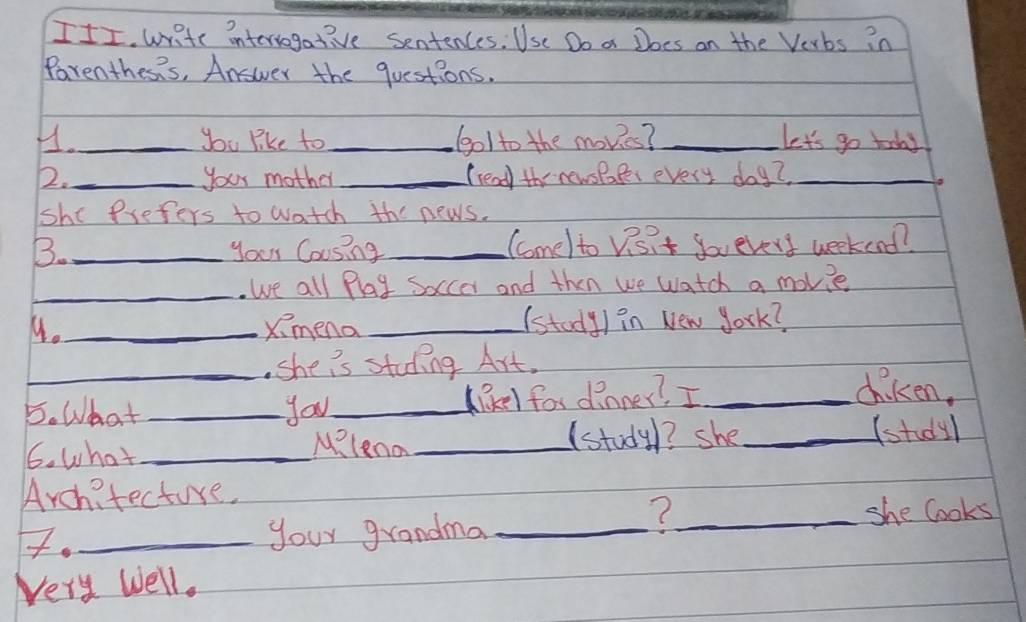 III. Write interrogative sentences. Use Do or Does an the Verbs in
Parenthesis. Answer the questions.
1. ______ You like to ______ (go) to the movies? ______ let's go today
2. ______ your mother ______ (read) the newspaper every day? ______.
She Prefers to watch the news.
3. ______ your Cousing ______ (come) to Visit you every weekend?
______. We all Play Soccer and then we watch a movie
4. ______ Ximena ______ (study) in New York?
______. She is studing Art.
5. What ______ you ______ (like) for dinner? I ______ chiken.
6. What ______ Milena ______ (study)? She ______ (study)
Architecture.
7. ______ your grandma ______? ______ she Cooks
Very Well.